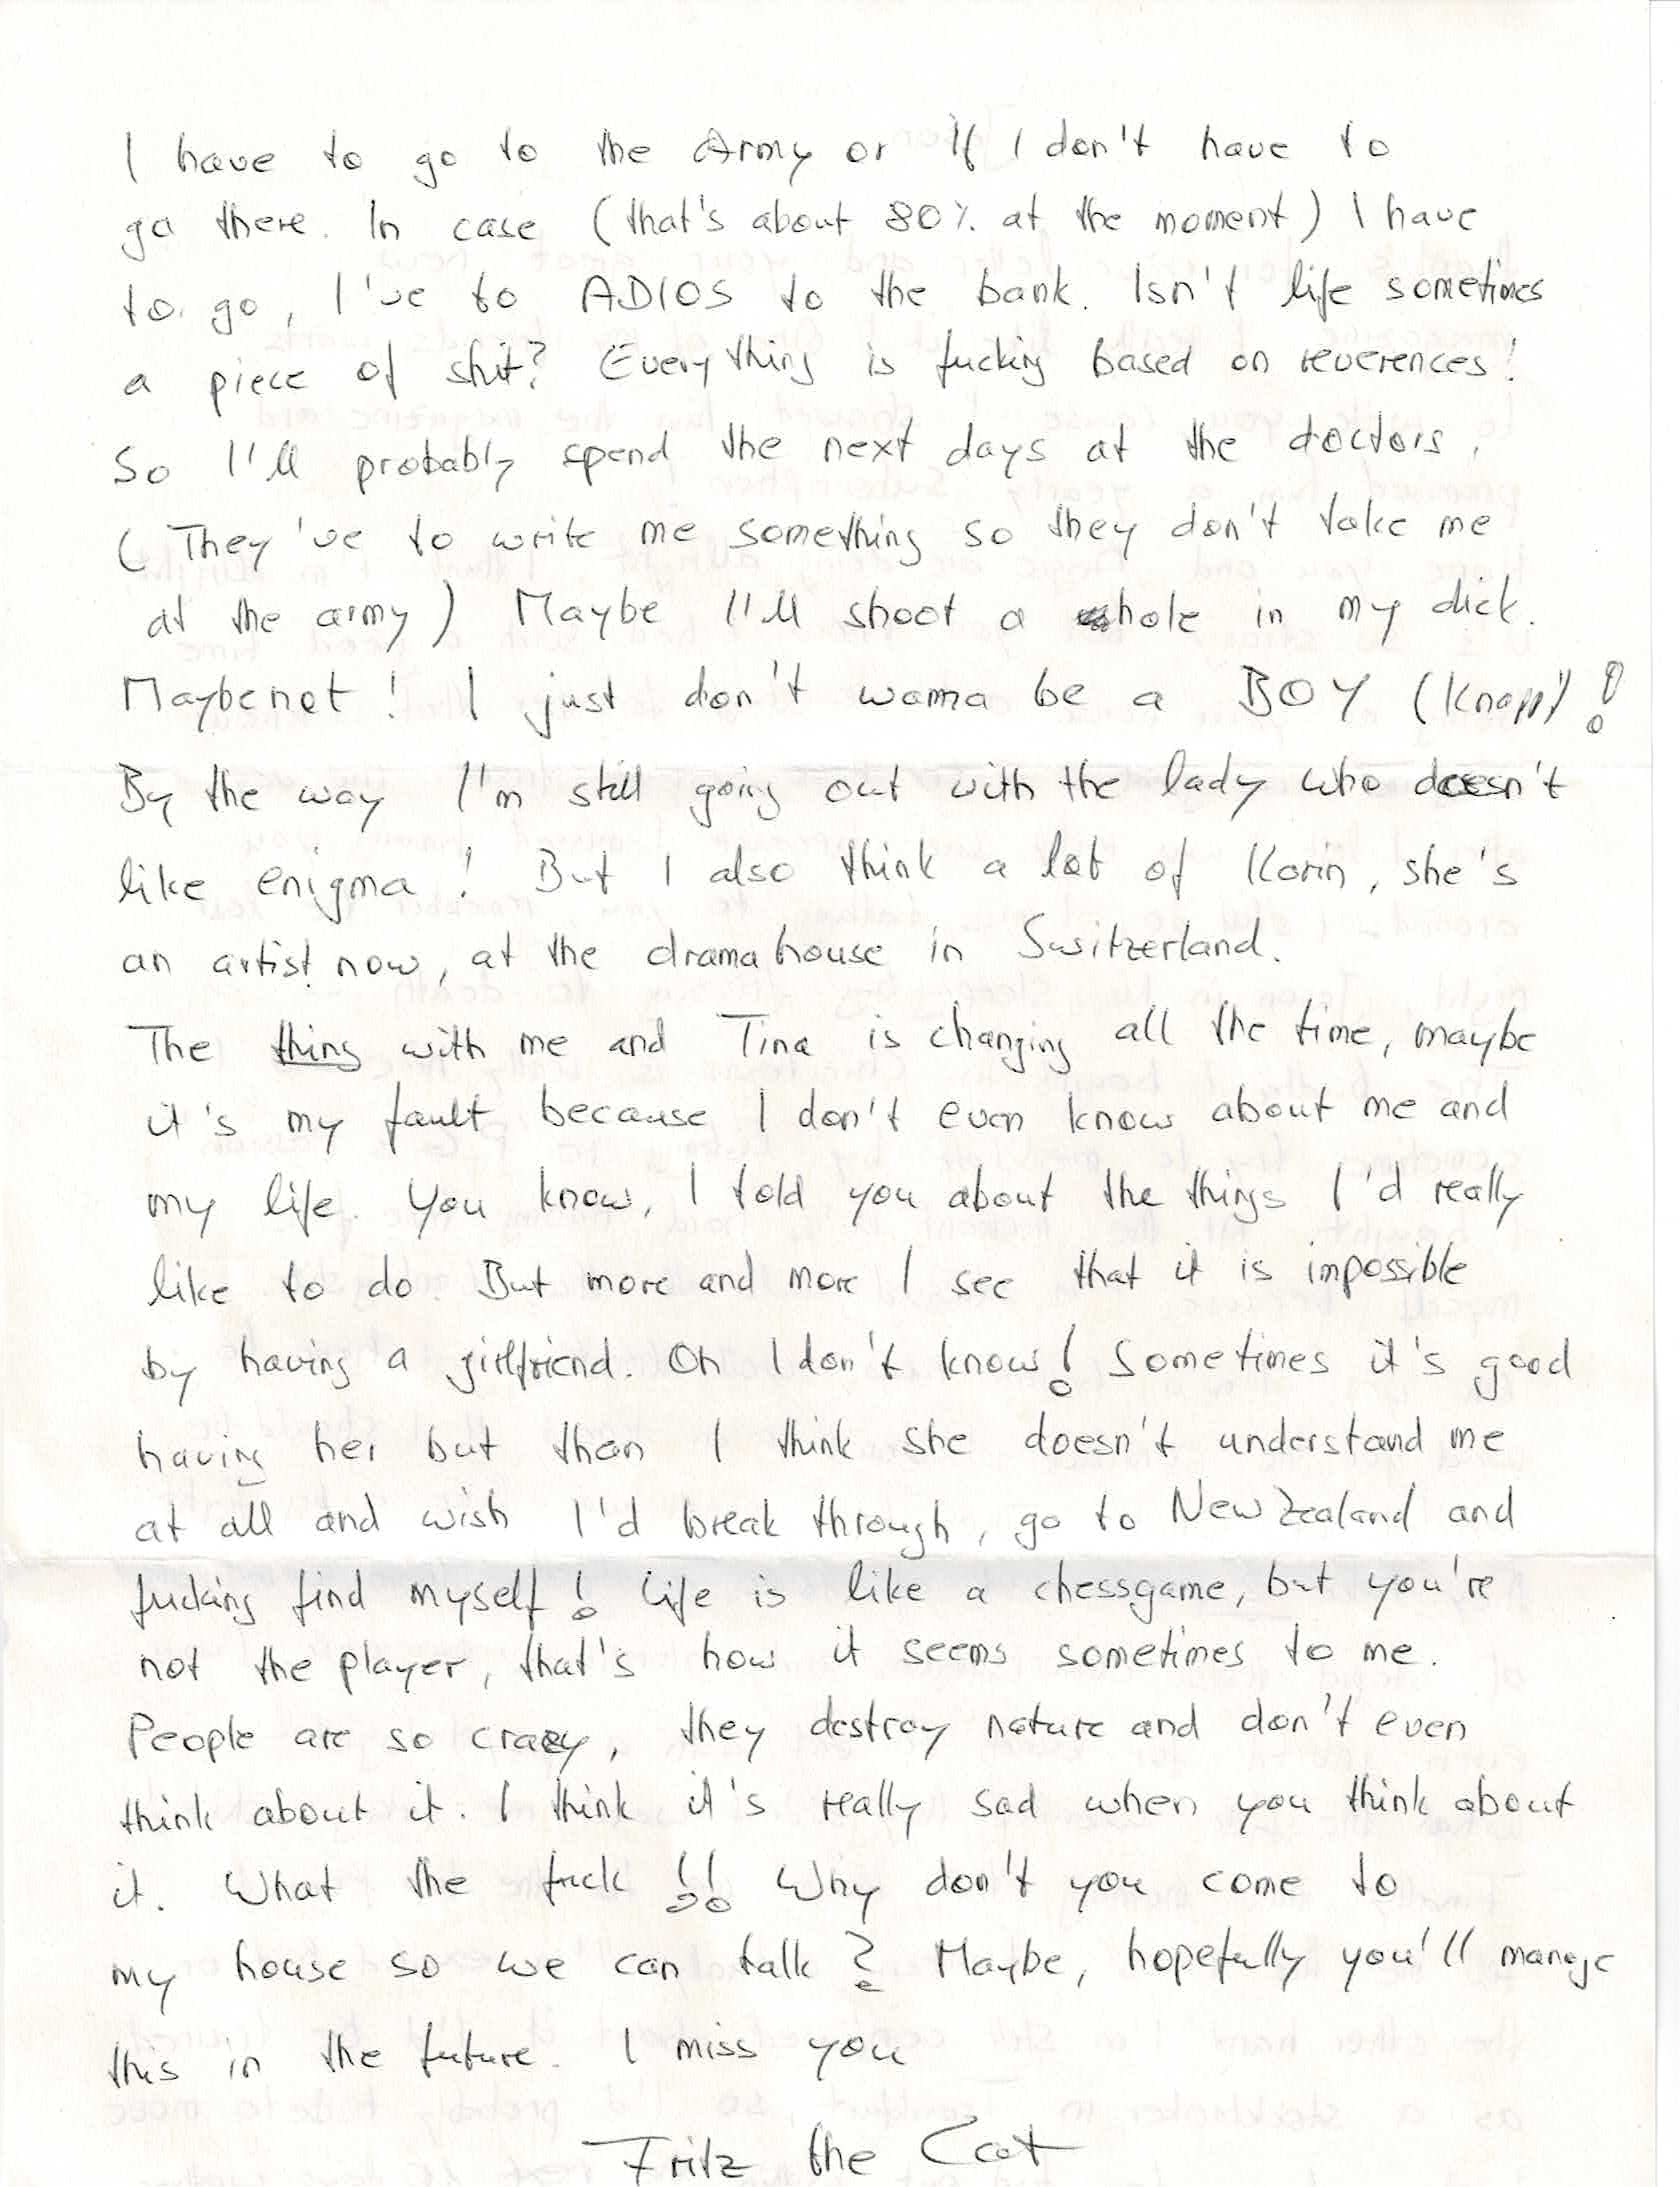 I have to go to the Army or If I don't have to
go there. In case (that's about 80% at the moment) I have
to go, I've to ADIOS to the bank. Isn't life sometimes
a piece of shit? Everything is fucking based on reverences!
So I'll probably spend the next days at the doctors,
(They've to write me something so they don't take me
at the army) Maybe I'll shoot a hole in my dick.
Maybe not! I just don't wanna be a BOY (Knapp)!
By the way I'm still going out with the lady who doesn't
like enigma! But I also think a lot of Karin, she's
an artist now, at the drama house in Switzerland.
The thing with me and Tina is changing all the time, maybe
it's my fault because I don't even know about me and
my life. You know, I told you about the things I'd really
like to do. But more and more I see that it is impossible
by having a girlfriend. Oh I don't know! Sometimes it's good
having her but than I think she doesn't understand me
at all and wish I'd break through, go to New Zealand and
fucking find myself! Life is like a chessgame, but you're
not the player, that's how it seems sometimes to me.
People are so crazy, they destroy nature and don't even
think about it. I think it's really sad when you think about
it. What the fuck!! Why don't you come to
my house so we can talk? Maybe, hopefully you'll manage
this in the future. I miss you
Fritz the Cat